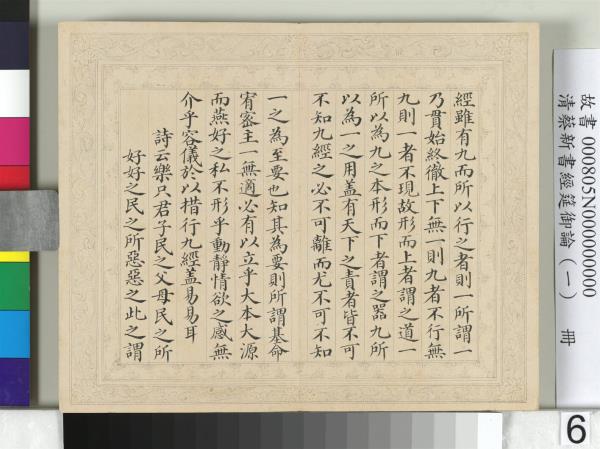 經雖有九而所以行之者則一所謂一
乃貫始終徹上下無一則九者不行無
九則一者不現故形而上者謂之道一
所以為九之本形而下者謂之器九所
以為一之用蓋有天下之責者皆不可
不知九經之必不可離而尤不可不知
一之為至要也知其為要則所謂基命
宥密主一無適必有以立乎大本大源
而燕好之私不形乎動靜情欲之感無
介乎容儀於以措行九經蓋易易耳
詩云樂只君子民之父母民之所
好好之民之所惡惡之此之謂
故書 000805N000000000
清蔡新書經筵御論（一） 冊
6